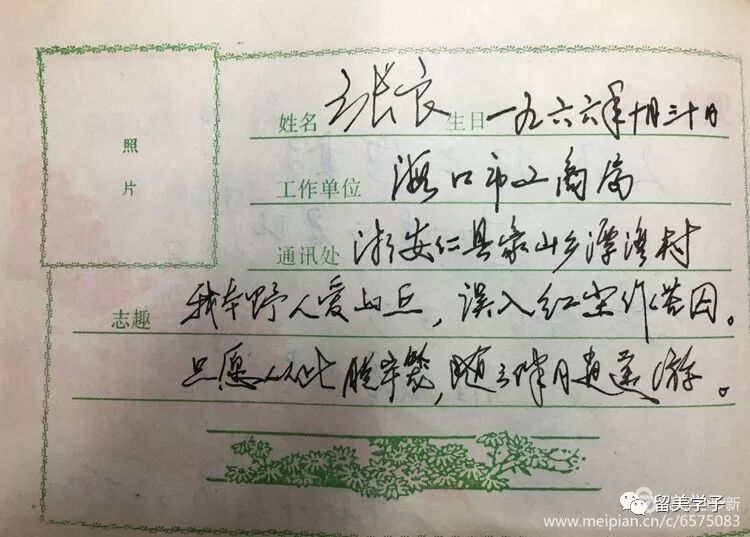 照
片
姓名 张良 生日 一九六六年十月三十日
工作单位 海口市工商局
通讯处 湘安仁县象山乡潭湾村
志趣 我本野人爱山丘，误入红尘作楚囚。
只愿从此脱牢笼，随云伴月逍遥游。
留美学子
www.meipian.cn/c/6575083